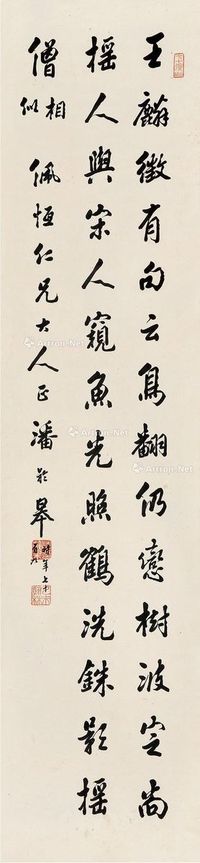 王麟徵有句云鳥翻仍戀樹波定尚
搖人與宋人窺魚光照鶴洗鉢影搖
僧相似 佩恒仁兄大人正 潘齡皋 時年七十有九